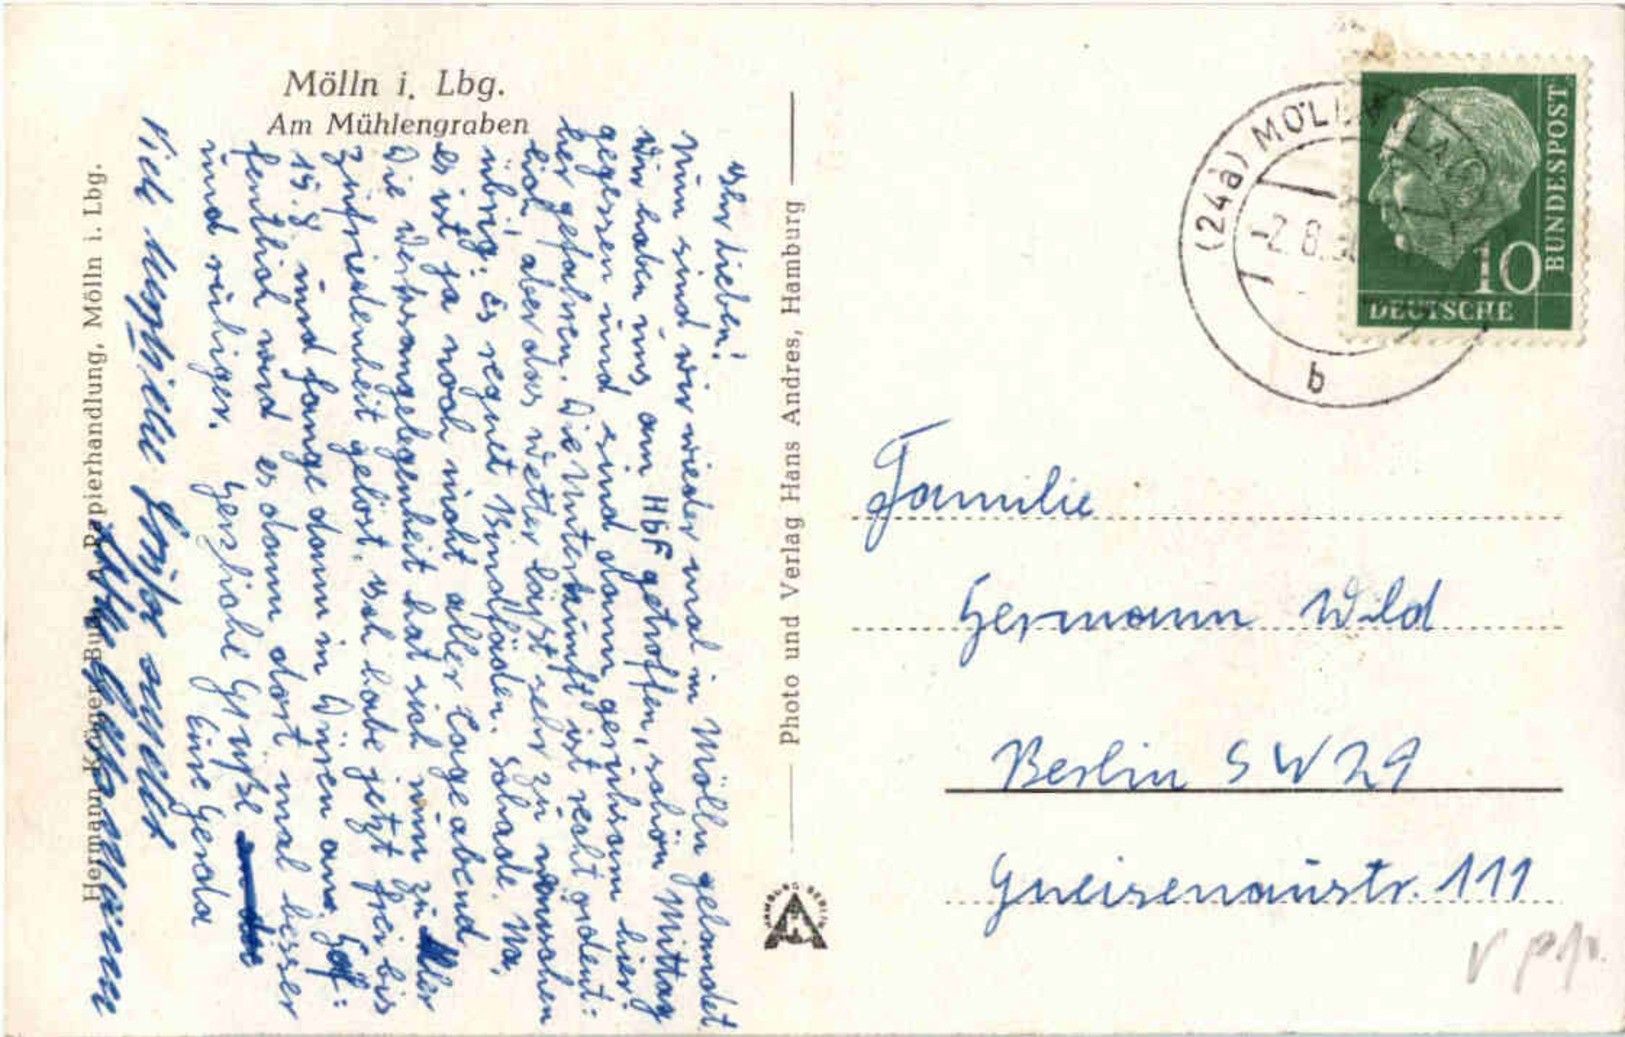 Mölln i. Lbg.
Am Mühlengraben
Ihr Lieben!
Nun sind wir wieder mal in Mölln gelandet
Wir haben uns am Hbf getroffen, schön Mittag
gegessen und sind dann gemeinsam hier:
her gefahren. Die Unterkunft ist recht ordent:
lich, aber das Wetter läßt sehr zu wünschen
übrig. Es regnet Bindfäden. Schade. Na,
es ist ja noch nicht aller Tage abend
Die Wohnungsangelegenheit hat sich nun zu
zufriedenheit gelöst. Ich habe jetzt frei bis
15.8 und fange dann in Düren an.
fentlich wird es dann dort mal besser
und ruhiger. Herzliche Grüße
Eure Gerda
Viele herzliche Grüße sendet
Hermann Krüger, Buch- u. Papierhandlung, Mölln i. Lbg.
Photo und Verlag Hans Andres, Hamburg
HAMBURG BERLIN
(24a) MÖLLN
-2.8.
b
10
DEUTSCHE
BUNDESPOST
Familie
Hermann Wild
Berlin SW 29
Gneisenaustr. 111